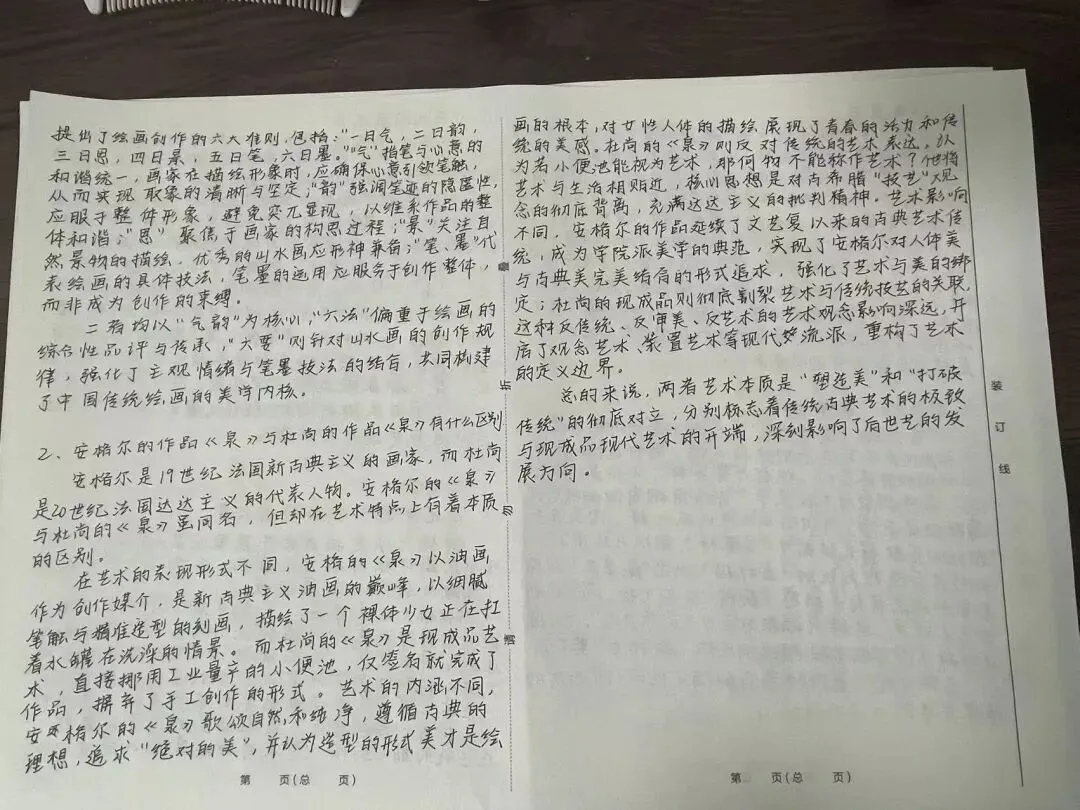 提出了绘画创作的六大准则，包括："一曰气，二曰韵，
三曰思，四曰景，五曰笔，六曰墨。""气"指笔与心意的
和谐统一，画家在描绘形象时，应确保心意引领笔触，
从而实现取象的清晰与坚定；"韵"强调笔迹的隐匿性，
应服于整体形象，避免突兀显现，以维系作品的整
体和谐；"思"聚焦于画家的构思过程；"景"关注自
然景物的描绘，优秀的山水画应形神兼备；"笔、墨"代
表绘画的具体技法，笔墨的运用应服务于创作整体，
而非成为创作的束缚。
二者均以"气韵"为核心，"六法"偏重于绘画的
综合性品评与传承，"六要"则针对山水画的创作规
律，强化了主观情绪与笔墨技法的结合，共同构建
了中国传统绘画的美学内核。
2、安格尔的作品《泉》与杜尚的作品《泉》有什么区别
安格尔是19世纪法国新古典主义的画家，而杜尚
是20世纪法国达达主义的代表人物。安格尔的《泉》
与杜尚的《泉》虽同名，但却在艺术特点上有着本质
的区别。
在艺术的表现形式不同，安格的《泉》以油画
作为创作媒介，是新古典主义油画的巅峰，以细腻
笔触与精准造型的刻画，描绘了一个裸体少女正在扛
着水罐在洗澡的情景。而杜尚的《泉》是现成品艺
术，直接挪用工业量产的小便池，仅签名就完成了
作品，摒弃了手工创作的形式。艺术的内涵不同，
安格尔的《泉》歌颂自然和纯净，遵循古典的
理想，追求"绝对的美"，并认为造型的形式美才是绘
第 页(总 页)
画的根本，对女性人体的描绘展现了青春的活力和传
统的美感。杜尚的《泉》则反对传统的艺术表达，认
为若小便池能视为艺术，那何物不能称作艺术？他将
艺术与生活相贴近，核心思想是对古希腊"技艺"观
念的彻底背离，充满达达主义的批判精神。艺术影响
不同，安格尔的作品延续了文艺复以来的古典艺术传
统，成为学院派美学的典范，实现了安格尔对人体美
与古典美完美结合的形式追求，强化了艺术与美的绑
定；杜尚的现成品则彻底割裂艺术与传统技艺的关联，
这种反传统、反审美、反艺术的艺术观念影响深远，开
启了观念艺术、装置艺术等现代流派，重构了艺术
的定义边界。
总的来说，两者艺术本质是"塑造美"和"打破
传统"的彻底对立，分别标志着传统古典艺术的极致
与现成品现代艺术的开端，深刻影响了后世艺的发
展方向。
第 页(总 页)
装
订
线